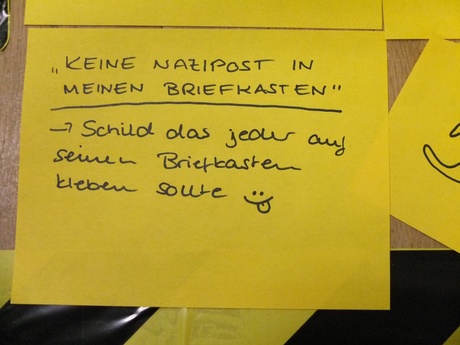 „KEINE NAZIPOST IN
MEINEN BRIEFKASTEN"
→ Schild das jeder auf
seinen Briefkasten
kleben sollte